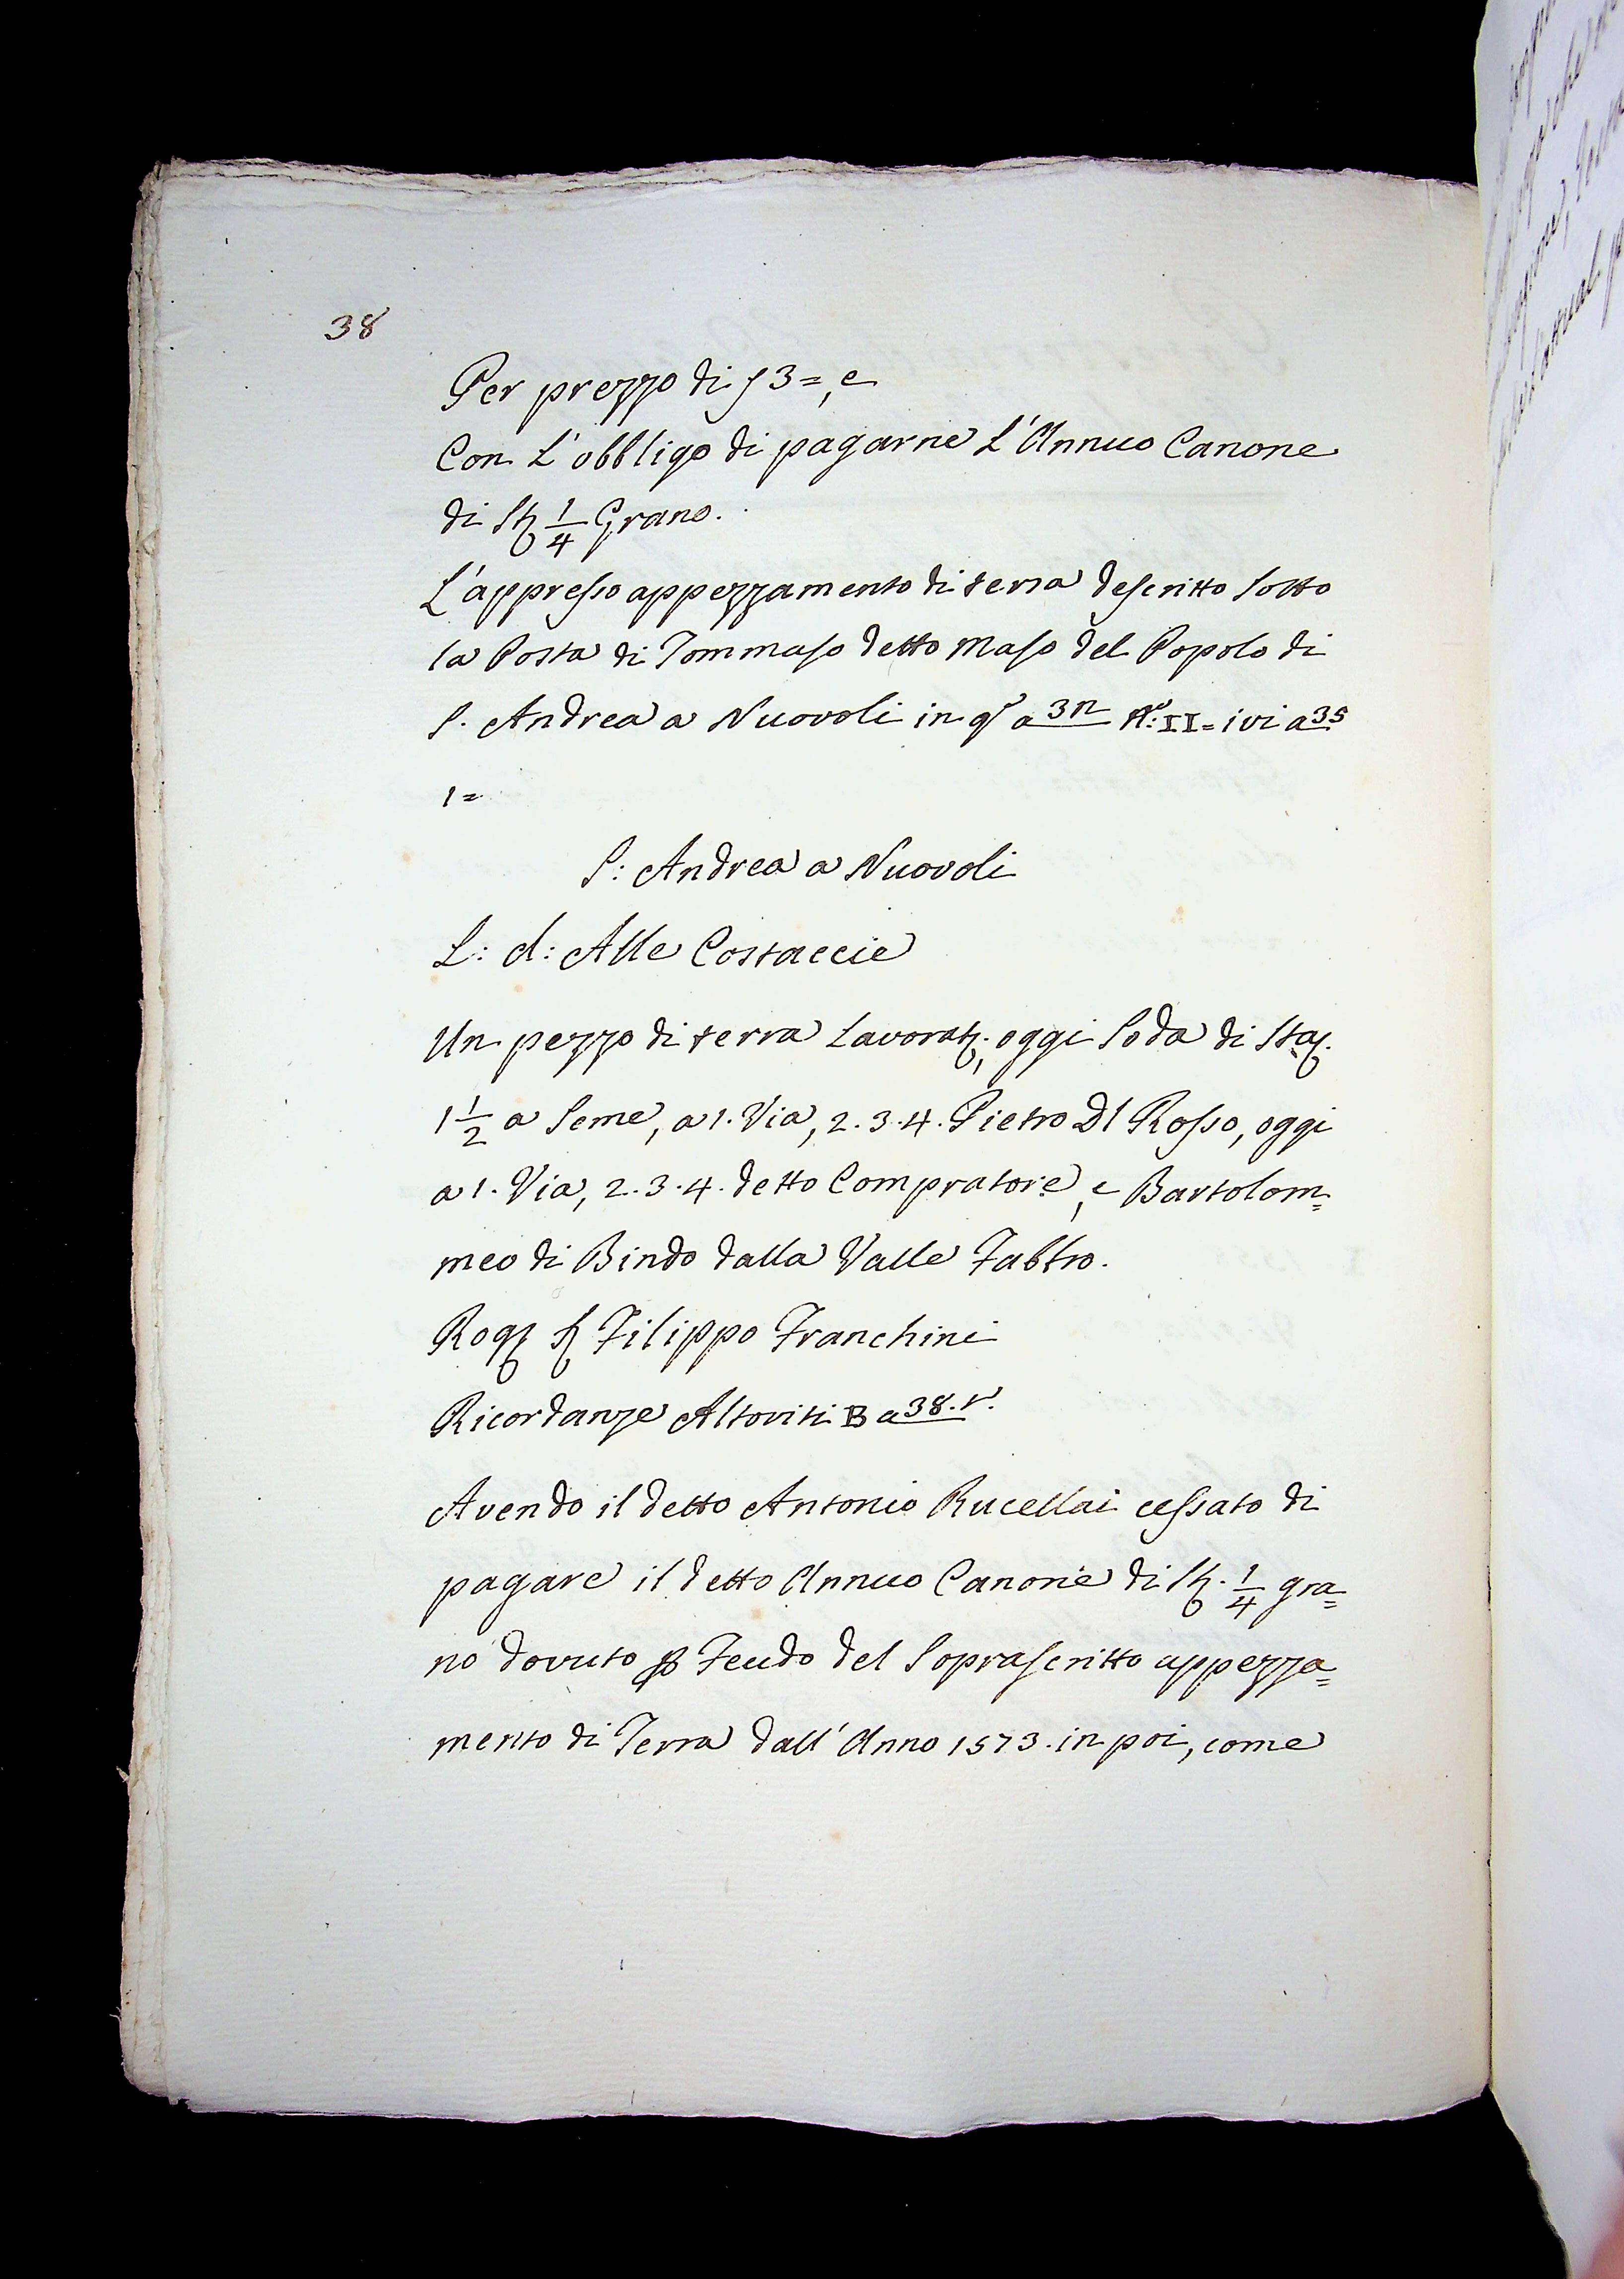 38
Per prezzo di ƒ 3 =, e
Con L'obbligo di pagarne L'Annuo Canone
di St: 1/4 Grano.
L'appresso appezzamento di terra descritto sotto
la Posta di Tommaso detto Maso del Popolo di
S. Andrea a Nuovoli in qto a 32 No: II = ivi a 35
1 =
S: Andrea a Nuovoli
L: d: Alle Costaccie
Un pezzo di terra Lavorat:, oggi Soda di Sta:
1 1/2 a Seme, a 1. Via, 2. 3. 4. Pietro Dl Rosso, oggi
a 1. Via, 2. 3. 4. detto Compratore, e Bartolom=
meo di Bindo dalla Valle Fabbro.
Rog: S: Filippo Franchini
Ricordanze Altoviti B a 38. t.
Avendo il detto Antonio Rucellai cessato di
pagare il detto Annuo Canone di St: 1/4 gra=
no dovuto p Feudo del Soprascritto appezza=
mento di Terra dall' Anno 1573. in poi, come